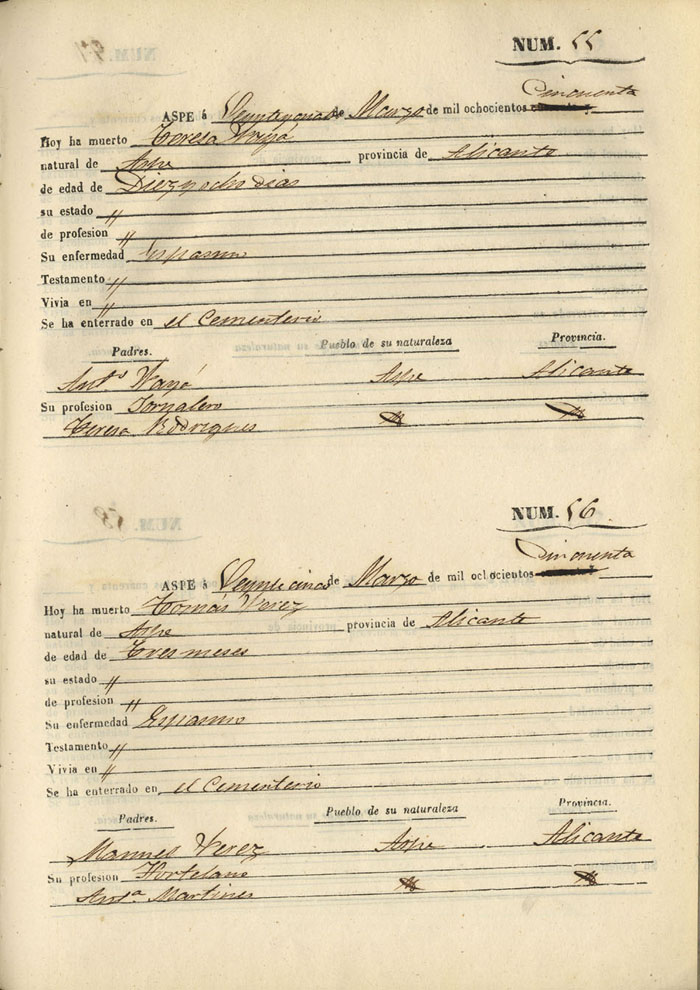 NUM. 55
Cincuenta
ASPE á de Marzo de mil ochocientos
Hoy ha muerto Teresa
natural de Aspe provincia de Alicante
de edad de Diez y ocho dias
su estado "
de profesion "
Su enfermedad Espasmo
Testamento "
Vivia en "
Se ha enterrado en el Cementerio
Padres. Pueblo de su naturaleza Provincia.
Ant.º Aspe Alicante
Su profesion Jornalero
Teresa Rodrigues
NUM. 56
Cincuenta
ASPE á Veinte cinco de Marzo de mil ochocientos
Hoy ha muerto Tomás Perez
natural de Aspe provincia de Alicante
de edad de Tres meses
su estado "
de profesion "
Su enfermedad Espasmo
Testamento "
Vivia en "
Se ha enterrado en el Cementerio
Padres. Pueblo de su naturaleza Provincia.
Perez Aspe Alicante
Su profesion Hortelano
Ant.ª Martines